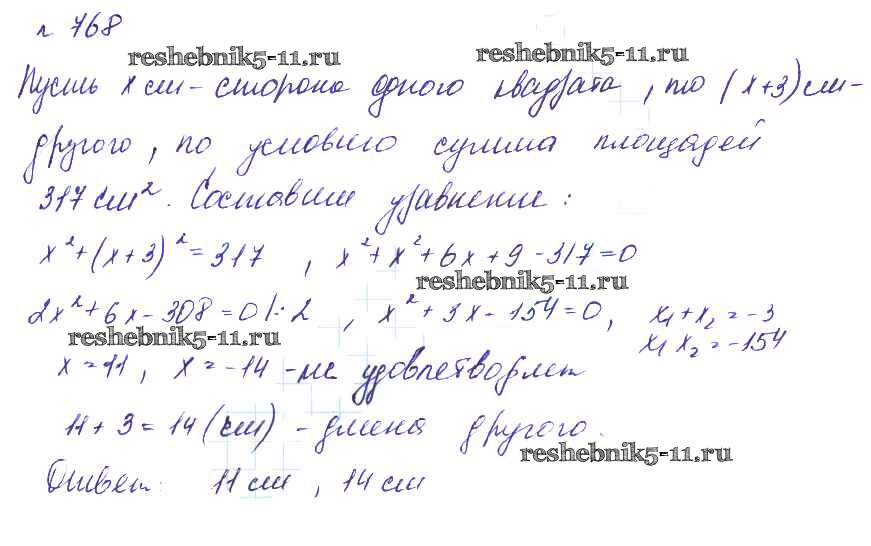 № 768
reshebnik5-11.ru reshebnik5-11.ru
Пусть x см - сторона одного квадрата, то (x+3) см -
другого, по условию сумма площадей
317 см². Составим уравнение:
x²+(x+3)²=317, x²+x²+6x+9-317=0
reshebnik5-11.ru
2x²+6x-308=0 |:2, x²+3x-154=0, x₁+x₂=-3
reshebnik5-11.ru x₁x₂=-154
x=11, x=-14 - не удовлетворяет
11+3=14 (см) - длина другого.
reshebnik5-11.ru
Ответ: 11 см, 14 см